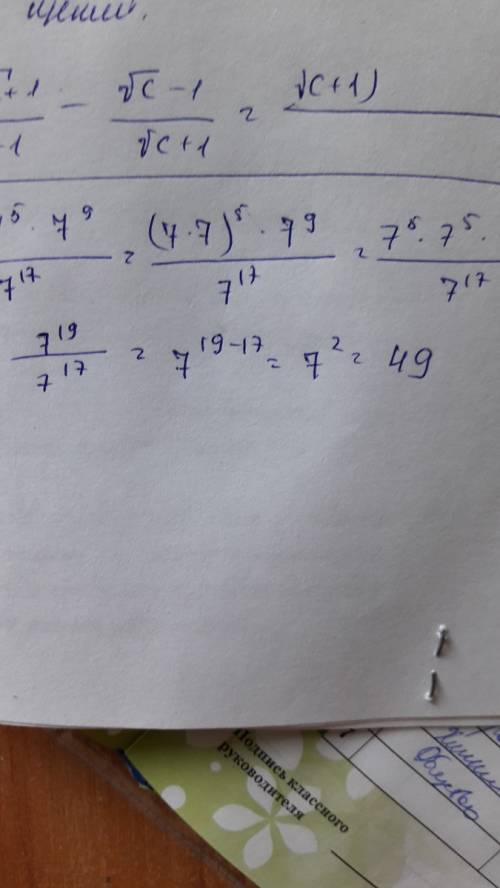 щений.
√c+1 / -1 − √c-1 / √c+1 = √c+1)
5 · 7^9 / 7^17 = (7·7)^5 · 7^9 / 7^17 = 7^5 · 7^5 · / 7^17
7^19 / 7^17 = 7^19-17 = 7^2 = 49
Подпись классного
руководителя